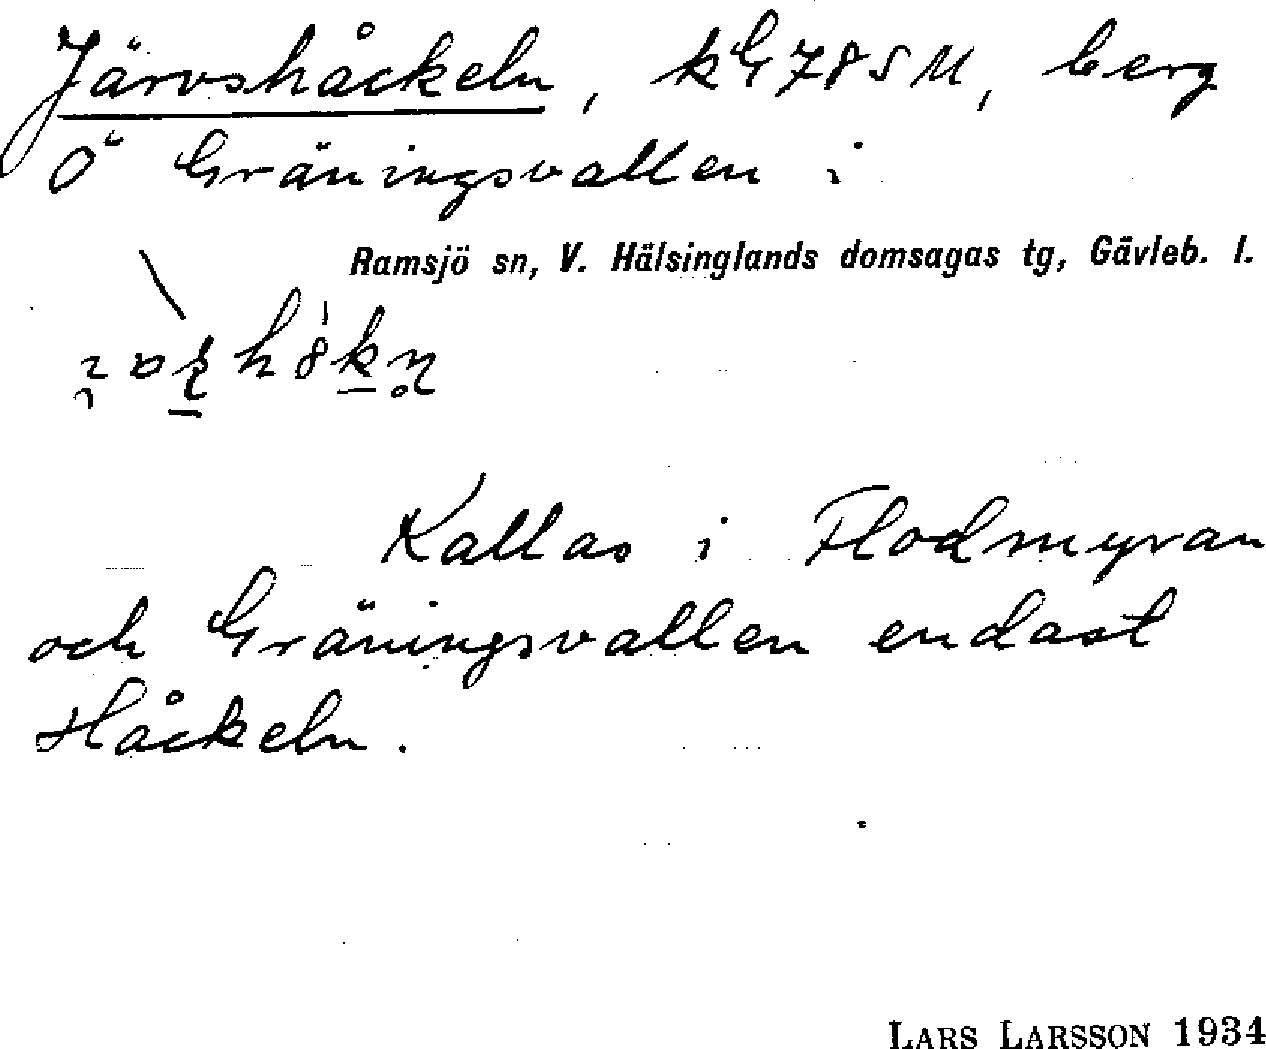 Järvshåckeln, kG785M, berg
Ö Gräningsvallen i
Ramsjö sn, V. Hälsinglands domsagas tg, Gävleb. l.
Kallas i Flodmyran
och Gräningsvallen endast
Håckeln.
LARS LARSSON 1934